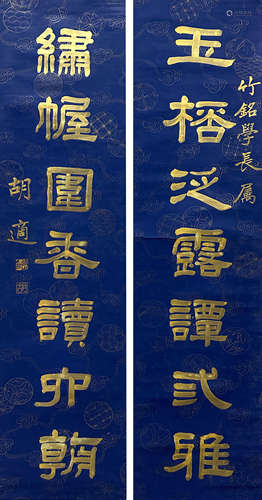 竹銘學長属
玉桮泛露譚弍雅
繡幄圍香讀
胡適